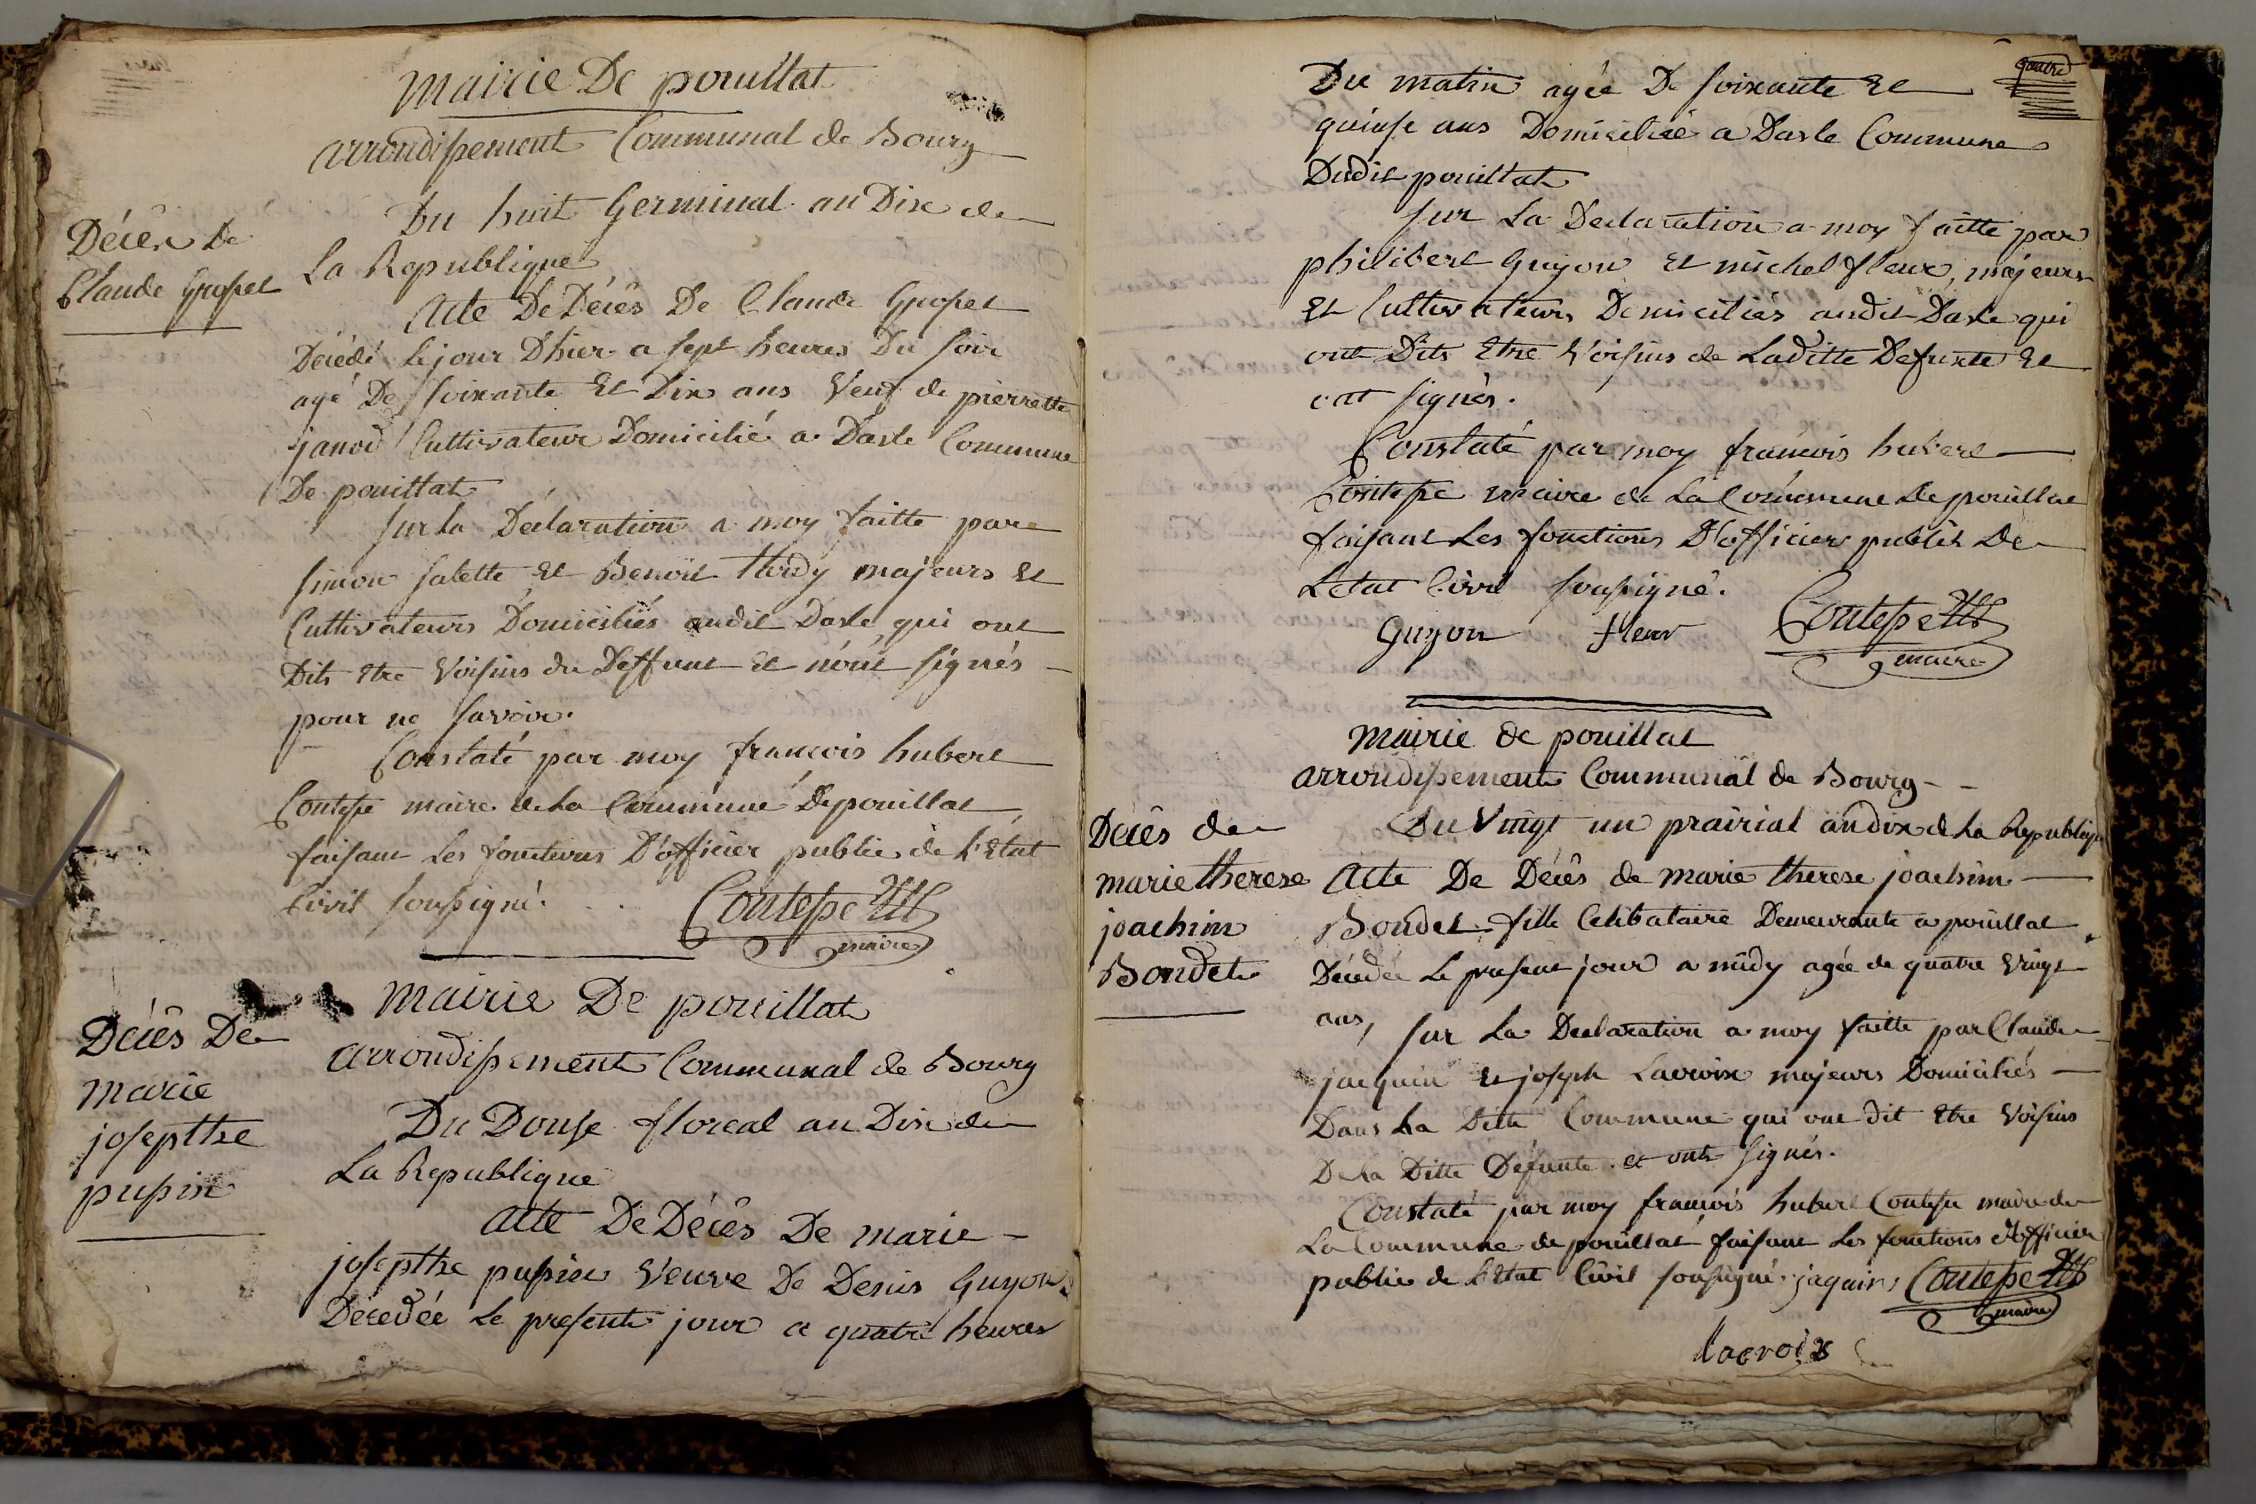 Mairie De pouillat
arrondissement Communal de Bourg
Du huit Germinal an Dix de
La Republique
Décès De
Claude Grosset
Acte De Décès De Claude Grosset
Décédé le jour D'hier a sept heures Du soir
agé De soixante Et Dix ans Veuf de pierrette
janod Cultivateur Domicilié a Dasle Commune
De pouillat
sur la Déclaration a moy faitte par
simon salette et Benoit tardy majeurs et
Cultivateurs Domiciliés audit Dasle qui ont
Dits Etre Voisins du Deffunt et n'ont signés
pour ne savoir.
Constaté par moy francois hubert
Contesse maire de La Commune De pouillat
faisant Les fonctions D'officier public de L'Etat
Civil soussigné.
Contesse
maire
Mairie De pouillat
arrondissement Communal de Bourg
Décès De
marie
josepthe
pussin
Du Douse floreal an Dix de
La Republique
Acte De Décès De marie
josepthe pussin Veuve De Denis Guyon
Décedée Le present jour a quatre heures
quatre
Du matin agée De soixante Et
quinse ans Domiciliée a Dasle Commune
Dudit pouillat
sur La Declaration a moy faitte par
philibert Guyon Et michel fleur, majeurs
Et Cultivateurs Domiciliés audit Dasle qui
ont Dits Etre Voisins de Laditte Defunte Et
ont signés.
Constaté par moy francois hubert
Contesse maire de La Commune De pouillat
faisant Les fonctions D'officier public De
L'etat Civil soussigné.
Guyon fleur Contesse
maire
Mairie de pouillat
arrondissement Communal de Bourg
Décès de
marie therese
joachim
Bondet
Du Vingt un prairial an dix de La Republique
Acte De Décès de marie therese joachim
Bondet fille Celibataire Demeurante a pouillat
Décedée Le present jour a midy agée de quatre Vingt
ans, sur La Declaration a moy faitte par Claude
jacquin et joseph Lacroix majeurs Domiciliés
Dans La Ditte Commune qui ont dit Etre Voisins
De La Ditte Defunte et ont signés.
Constaté par moy francois hubert Contesse maire de
La Commune de pouillat faisant Les fonctions d'officier
public de L'Etat Civil soussigné. jaquin Contesse
maire
lacroix